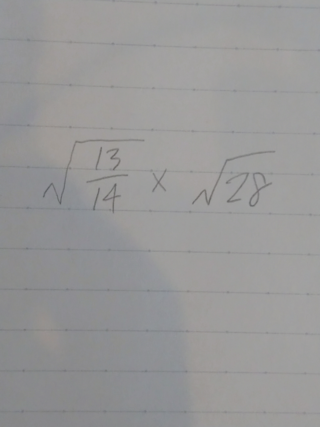 √(13/14) × √28